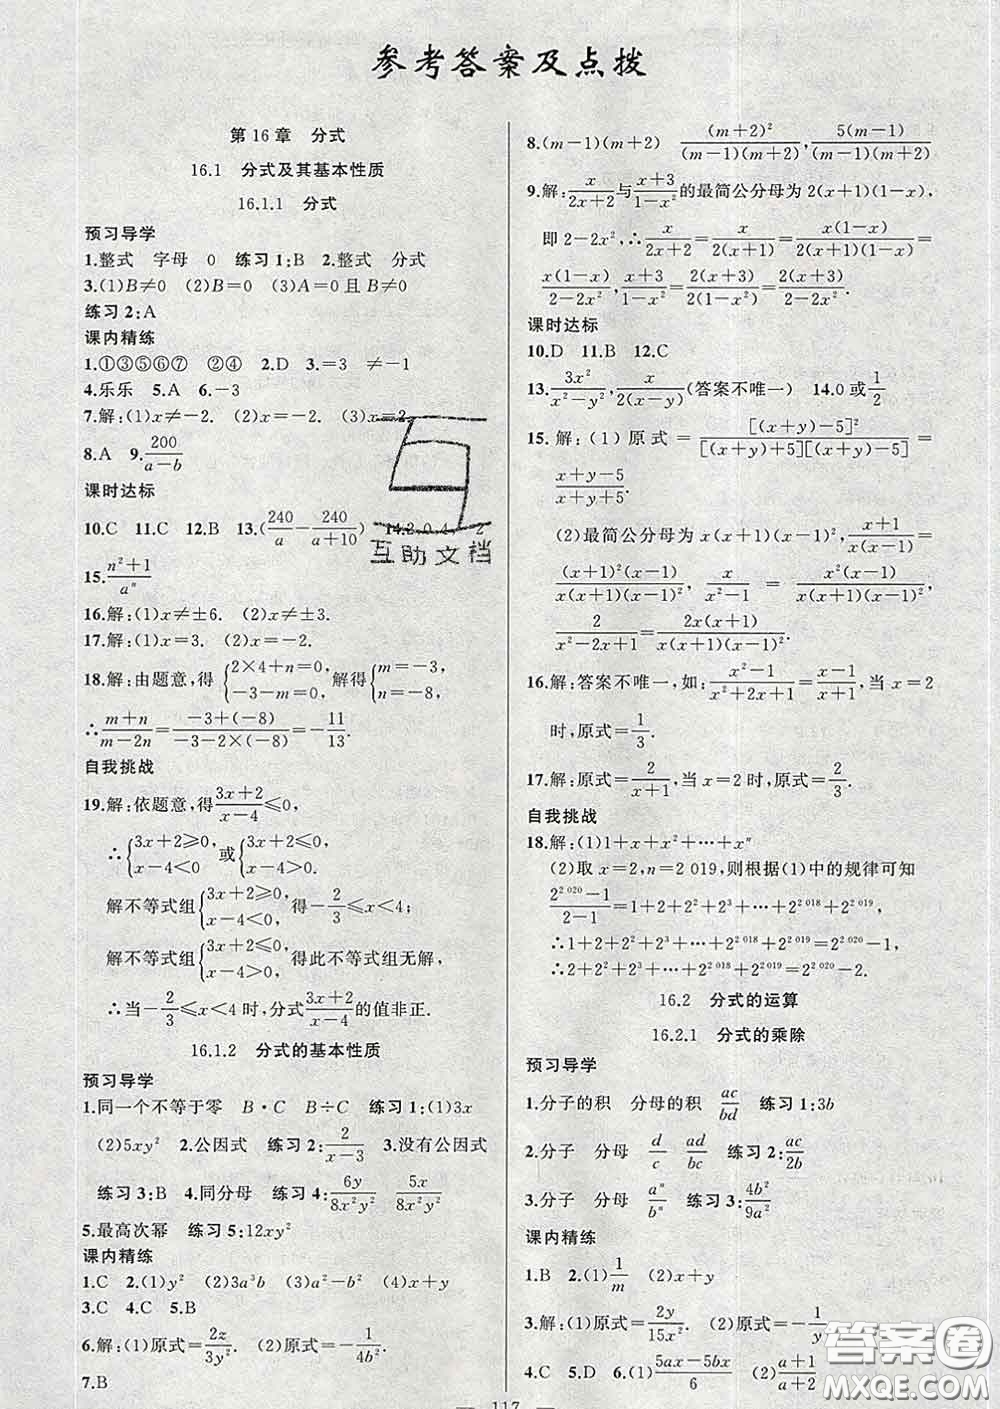 参考答案及点拨
第16章　分式
16.1　分式及其基本性质
16.1.1　分式
预习导学
1.整式　字母　0　练习1:B　2.整式　分式
3.(1)B≠0　(2)B=0　(3)A=0且B≠0
练习2:A
课内精练
1.①③⑤⑥⑦　②④　2.D　3.=3　≠-1
4.乐乐　5.A　6.-3
7.解:(1)x≠-2.　(2)x=-2.　(3)x=2
8.A　9.200/(a-b)
课时达标
10.C　11.C　12.B　13.(240/a-240/(a+10))　14.2,0,4
15.(n²+1)/aⁿ
16.解:(1)x≠±6.　(2)x≠±3.
17.解:(1)x=3.　(2)x=-2.
18.解:由题意,得{2×4+n=0, -3-m=0,解得{m=-3, n=-8,
∴(m+n)/(m-2n)=(-3+(-8))/(-3-2×(-8))=-11/13.
自我挑战
19.解:依题意,得(3x+2)/(x-4)≤0,
∴{3x+2≥0, x-4<0 或{3x+2≤0, x-4>0.
解不等式组{3x+2≥0, x-4<0, 得-2/3≤x<4;
解不等式组{3x+2≤0, x-4>0, 得此不等式组无解,
∴当-2/3≤x<4时,分式(3x+2)/(x-4)的值非正.
16.1.2　分式的基本性质
预习导学
1.同一个不等于零　B·C　B÷C　练习1:(1)3x
(2)5xy²　2.公因式　练习2:2/(x-3)　3.没有公因式
练习3:B　4.同分母　练习4:6y/(8x²y²)　5x/(8x²y²)
5.最高次幂　练习5:12xy²
课内精练
1.C　2.(1)y²　(2)3a³b　(3)a²-b²　(4)x+y
3.C　4.C　5.B
6.解:(1)原式=2z/(3y²).　(2)原式=-1/(4b²).
7.B
8.(m-1)(m+2)　(m+2)²/((m-1)(m+2)),5(m-1)/((m-1)(m+2))
9.解:x/(2x+2)与(x+3)/(1-x²)的最简公分母为2(x+1)(1-x),
即2-2x²,∴x/(2x+2)=x/(2(x+1))=x(1-x)/(2(x+1)(1-x))=
x(1-x)/(2-2x²),(x+3)/(1-x²)=2(x+3)/(2(1-x²))=2(x+3)/(2-2x²).
课时达标
10.D　11.B　12.C
13.3x²/(x²-y²),x/(2(x-y))(答案不唯一)　14.0或1/2
15.解:(1)原式=[(x+y)-5]²/([(x+y)+5][(x+y)-5])=
(x+y-5)/(x+y+5).
(2)最简公分母为x(x+1)(x-1)²,(x+1)/(x²-x)=
(x+1)²(x-1)/(x(x+1)(x-1)²),x/(x²-1)=x²(x-1)/(x(x+1)(x-1)²),
2/(x²-2x+1)=2x(x+1)/(x(x+1)(x-1)²).
16.解:答案不唯一,如:(x²-1)/(x²+2x+1)=(x-1)/(x+1),当x=2
时,原式=1/3.
17.解:原式=2/(x+1),当x=2时,原式=2/3.
自我挑战
18.解:(1)1+x+x²+⋯+xⁿ
(2)取x=2,n=2 019,则根据(1)中的规律可知
(2^2 020-1)/(2-1)=1+2+2²+2³+⋯+2^2 018+2^2 019,
∴1+2+2²+2³+⋯+2^2 018+2^2 019=2^2 020-1,
∴2+2²+2³+⋯+2^2 018+2^2 019=2^2 020-2.
16.2　分式的运算
16.2.1　分式的乘除
预习导学
1.分子的积　分母的积　ac/bd　练习1:3b
2.分子　分母　d/c　ad/bc　练习2:ac/2b
3.分子　分母　aⁿ/bⁿ　练习3:4b²/9a²
课内精练
1.B　2.(1)1/m　(2)x+y
3.解:(1)原式=2y/(15x²).　(2)原式=-1/y
4.C　5.D　6.(1)(5ax-5bx)/6　(2)(a+1)/(a+2)
— 117 —
互助文档
答案圈
MXQE.COM